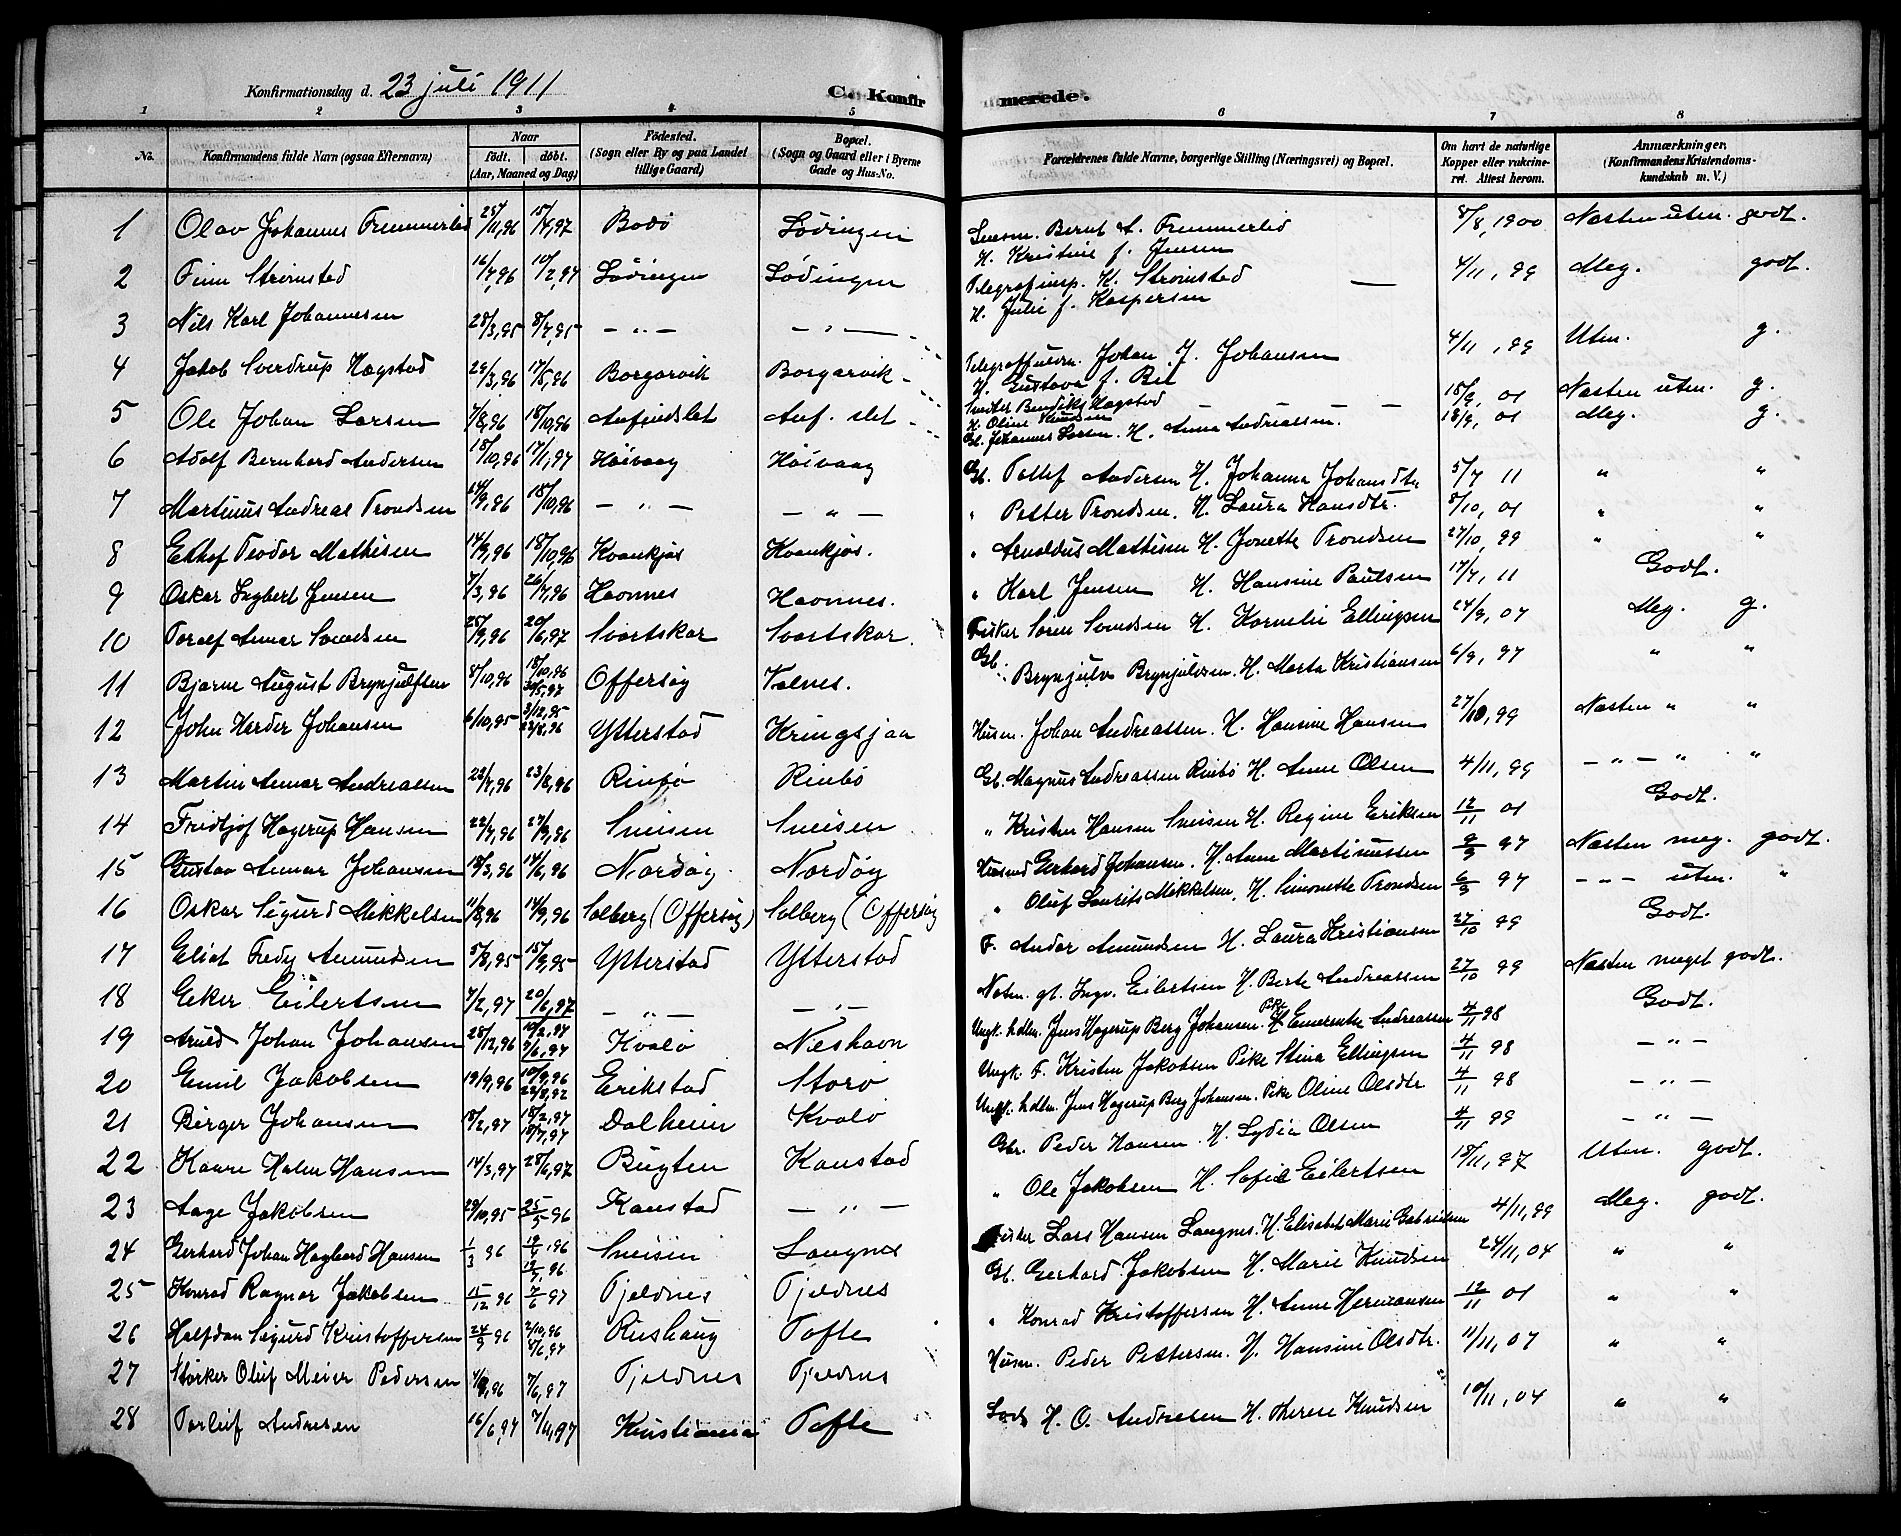 Konfirmationsdag d. 23 juli 1911
C. Konfir
merede.
1 2 3 4 5 6 7 8
No. Konfirmandens fulde Navn (ogsaa Efternavn) Naar født. døbt. (Aar, Maaned og Dag) Fødested. (Sogn eller By og paa Landet tillige Gaard) Bopæl. (Sogn og Gaard eller i Byerne Gade og Hus-No. Forældrenes fulde Navne, borgerlige Stilling (Næringsvei) og Bopæl. Om havt de naturlige Kopper eller vakcineret. Attest herom. Anmærkninger. (Konfirmandens Kristendomskundskab m. V.)
1 Olav Johannes Fremmerlid 25/11,96 18/4,97 Bodø Lødingen Bernt A. Fremmerlid 8/8,1900 Næsten utm. godt.
H. Kristine f. Jensen
2 Finn Strømsted 16/7,96 10/2,97 Lødingen Lødingen Telegrafinsp. K. Strømsted 4/11,99 Meg. godt.
H. Julie f. Kaspersen
3 Nils Karl Johannesen 28/3,95 8/7,95 — " — — " — Johan J. Johansen 4/11,99 Utm. g.
H. Gustava f.
4 Jakob Sverdrup Hegstad 29/3,96 17/5,96 Borgarvik Borgarvik Bendikt Hegstad 18/9,01 Næsten utm. g.
H. Oline Knudsen
5 Ole Johan Larsen 7/8,96 18/10,96 Anfindslet Anf. slet Gb. Johannes Larsen. H. Anna Andreassen. 18/9,01 Meg. g.
6 Adolf Bernhard Andersen 18/10,96 17/1,97 Høivaag Høivaag Gb. Tollef Andersen H. Johanna Johansdtr 5/7 11 " "
7 Martinus Andreas Trondsen 24/9,96 18/10,96 — " — — " — " Petter Trondsen. H. Laura Hansdtr. 8/10,01 " "
8 Teodor Mathisen 14/9,96 18/10,96 Kvankjos Kvankjos. " Arnoldus Mathisen H. Jonette Trondsen 27/10,99 " "
9 Oskar Ingbert Jensen 7/3,96 26/7,96 Havnnes Havnnes. " Karl Jensen H. Hansine Paulsen 17/7,11 Godt.
10 Toralf Annar Svendsen 25/9,96 20/6,97 Svartskar Svartskar. Fisker Søren Svendsen H. Kornelie Ellingsen 24/9,07 Meg. g.
11 Bjarne August Brynjulfsen 8/10,96 18/10,96 30/5,97 Offersøy Valnes. Gb. Brynjulv Brynjulvsen. H. Marta Kristiansen 6/9,97 " "
12 John Herder Johansen 6/10,95 3/12,95 23/8,96 Ytterstad Kringsjaa Husm. Johan Andreassen. H. Hansine Hansen 27/10,99 Næsten " "
13 Martin Annar Andreassen 22/7,96 23/8,96 Rinbø Rinbø Gb. Magnus Andreassen Rinbø H. Anne Olsen 4/11,99 — " — " "
14 Fridtjof Hagerup Hansen 22/7,96 27/9,96 Sneisen Sneisen " Kristen Hansen Sneisen H. Regine Eriksen 12/11 01 Godt.
15 Gustav Annar Johansen 18/3,96 14/6,96 Nordøy Nordøy Husmd Gerhard Johansen. H. Anne Martinussen 9/9 97 Næsten meg. godt.
16 Oskar Sigurd Mikkelsen 11/8,96 14/9,96 Solberg (Offersøy) Solberg (Offersøy " Oluf Laurits Mikkelsen. H. Simonette Trondsen 6/9 97 — — utm. "
17 Eliot Fredy Amundsen 5/8,95 15/9,95 Ytterstad Ytterstad F. Andor Amundsen H. Laura Kristiansen 27/10 99 Godt.
18 Eker Eilertsen 7/2,97 20/6,97 — " — — " — Ingv. Eilertsen H. Berte Andreassen 27/10 99 Næsten meget godt.
19 Arild Johan Johansen 28/12,96 10/2,97 7/6,97 Kvalø Neshavn Ungk. hdlm. Jens Hagerup Berg Johansen. Pike Emerentse Andreassen 4/11 98 Godt.
20 Emil Jakobsen 19/9,96 10/9,96 23/8,97 Erikstad Storø Ungk. F. Kristen Jakobsen Pike Stina Ellingsen 4/11 98 — " —
21 Birger Johansen 18/2,97 18/2,97 18/7,97 Dalheim Kvalø Ungk. hdlm. Jens Hagerup Berg Johansen. Pike Oline Olsdtr 4/11 98 — " —
22 Kaare Holm Hansen 14/3,97 28/6,97 Bugten Kanstad Gbr. Peder Hansen. H. Lydia Olsen 4/11 99 — " —
23 Aage Jakobsen 29/10,95 25/5 96 Kanstad — " — " Ole Jakobsen H. Sofie Eilertsen 18/11,97 Utm. godt.
24 Gerhard Johan Hagbard Hansen 1/3 96 12/4,96 12/7,96 Sneisen Langnes Fisker Lars Hansen Langnes. H. Elisabet Marie Gabrielsen 4/11,99 Meg. godt.
25 Konrad Ragnar Jakobsen 15/12 96 7/6 97 Tjeldnes Tjeldnes Gb. Gerhard Jakobsen H. Marie Knudsen 24/11,04 " "
26 Halfdan Sigurd Kristoffersen 24/9 96 2/10,96 8/6,97 Rushaug Tofte " Konrad Kristoffersen H. Anne Hermansen 12/11 01 " "
27 Størker Oluf Meier Pedersen 4/9,96 7/6,97 Tjeldnes Tjeldnes Husm. Peder Pettersen. H. Hansine Olsdtr. 11/11,07 " "
28 Torleif Andresen 16/6,97 7/11,97 Kristiania Tofte Lods H. O. Andresen H. Therese Knudsen 10/11,04 " "